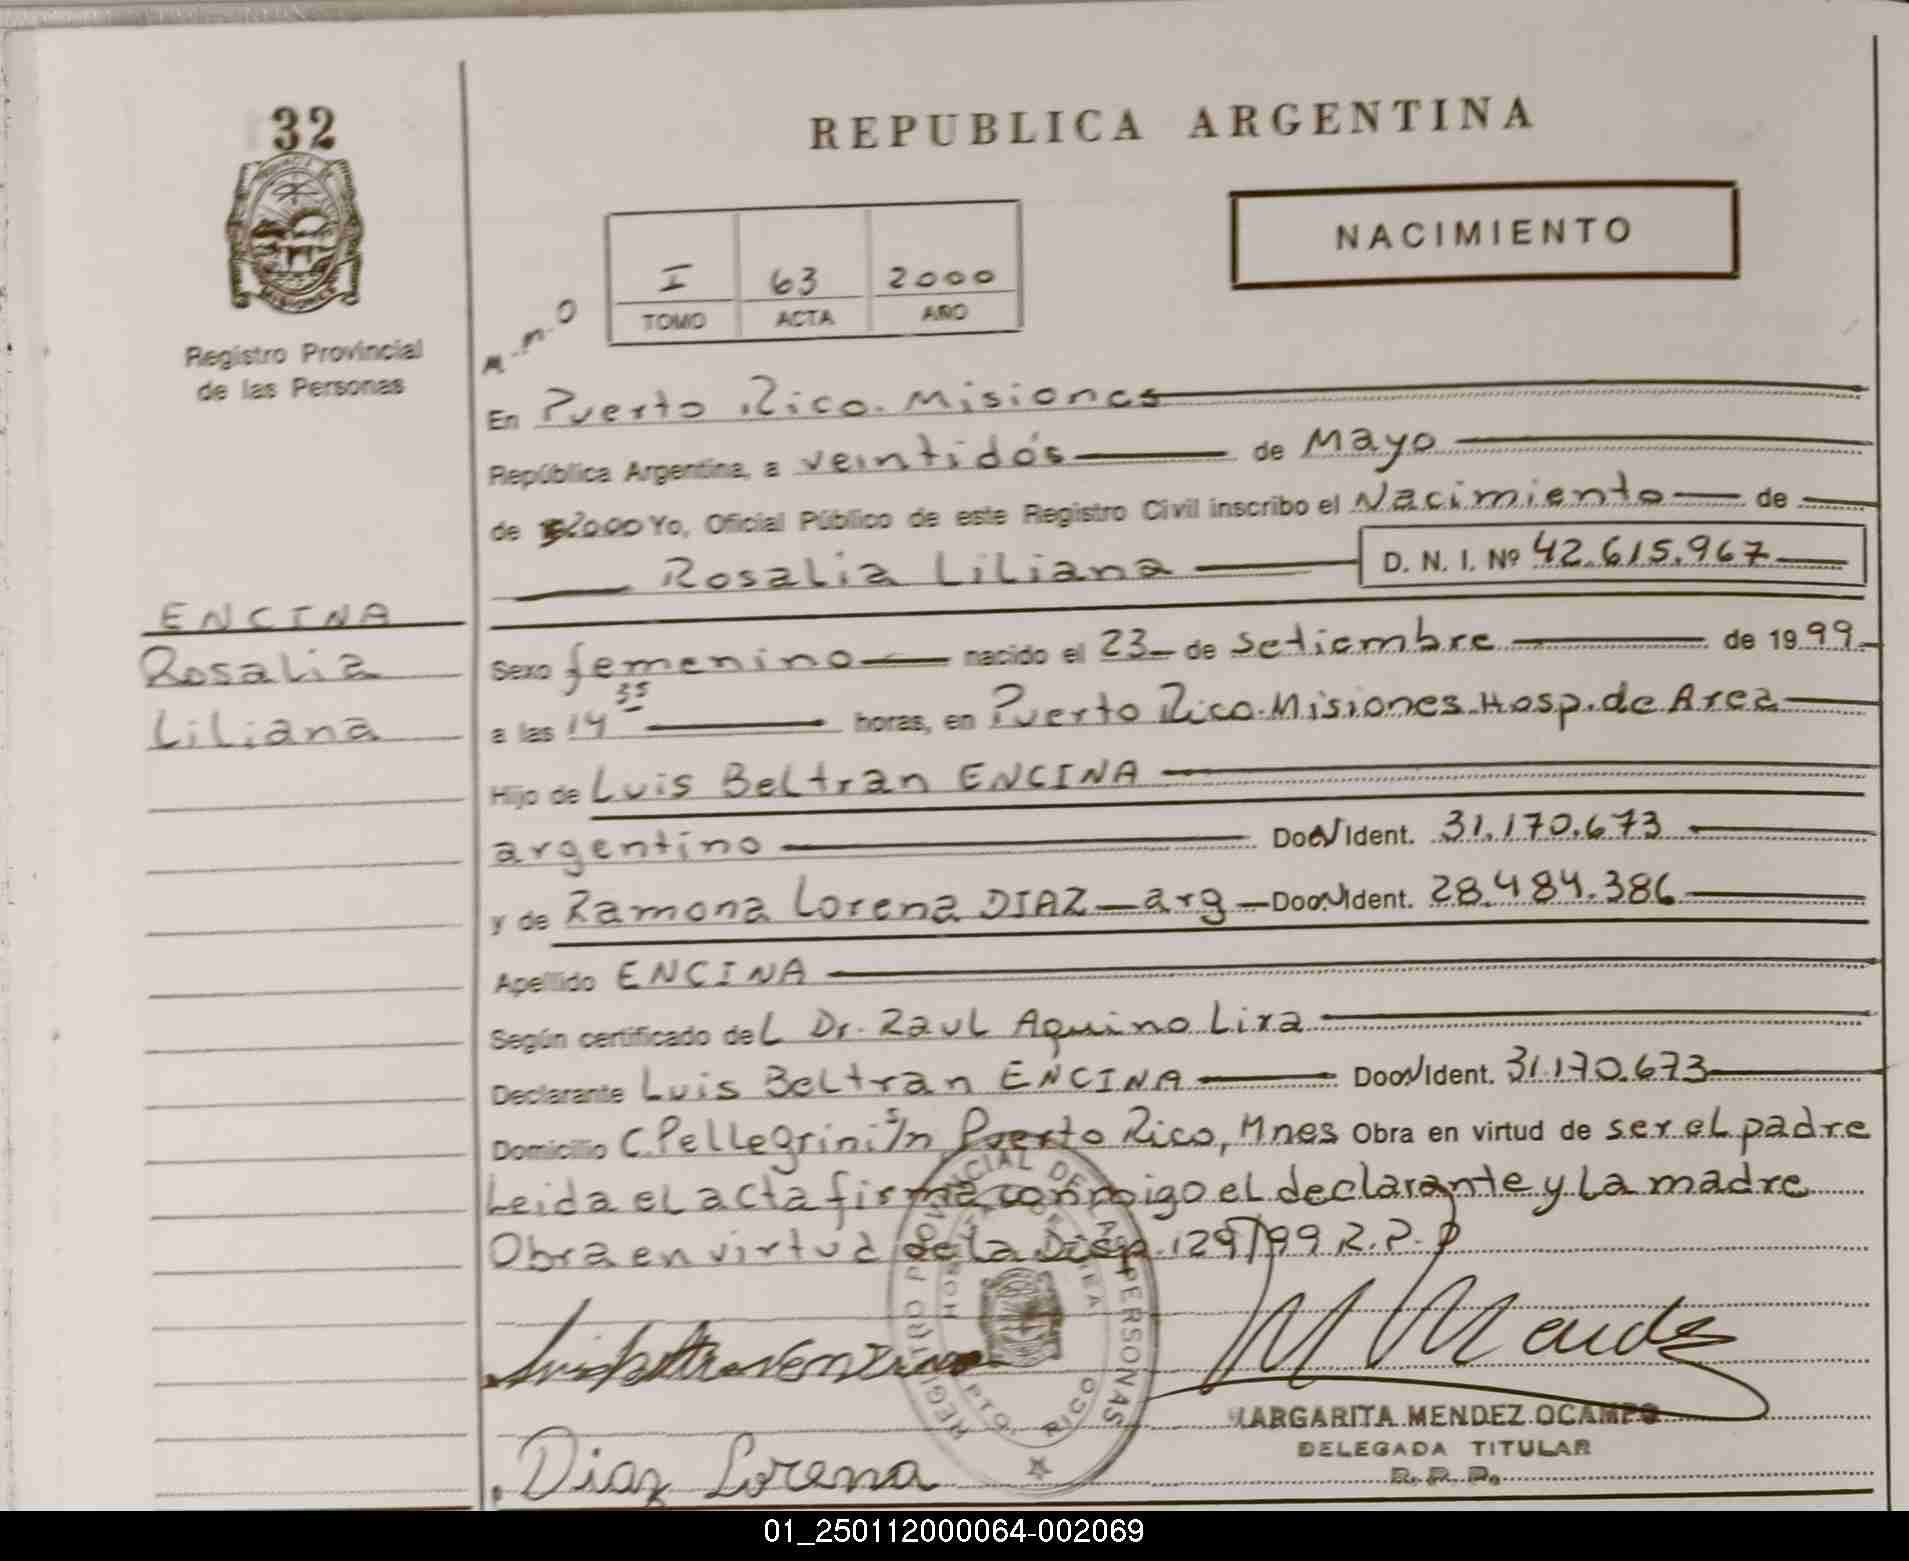 32
REPUBLICA ARGENTINA
NACIMIENTO
MISIONES
I 63 2000
TOMO ACTA AÑO
Registro Provincial
de las Personas
En Puerto Rico. Misiones
República Argentina, a veintidós de Mayo
de 2000 Yo, Oficial Público de este Registro Civil inscribo el Nacimiento de
Rosalia Liliana D. N. I. Nº 42.615.967
ENCINA
Rosalia
Liliana
Sexo femenino nacido el 23 de Setiembre de 1999
a las 14 35 horas, en Puerto Rico. Misiones. Hosp. de Area
Hijo de Luis Beltran ENCINA
argentino Doc. Ident. 31.170.673
y de Ramona Lorena DIAZ arg Doc. Ident. 28.484.386
Apellido ENCINA
Según certificado del Dr. Raul Aquino Lira
Declarante Luis Beltran ENCINA Doc. Ident. 31.170.673
Domicilio C. Pellegrini s/n Puerto Rico, Mnes Obra en virtud de ser el padre
Leida el acta firma conmigo el declarante y la madre
Obra en virtud de la Disp. 129/99 R.P.P
REGISTRO PROVINCIAL DE LAS PERSONAS
PTO. RICO
Luis beltran encina
M Mendez
MARGARITA MENDEZ OCAMPO
DELEGADA TITULAR
R. P. P.
Diaz Lorena
01_250112000064-002069